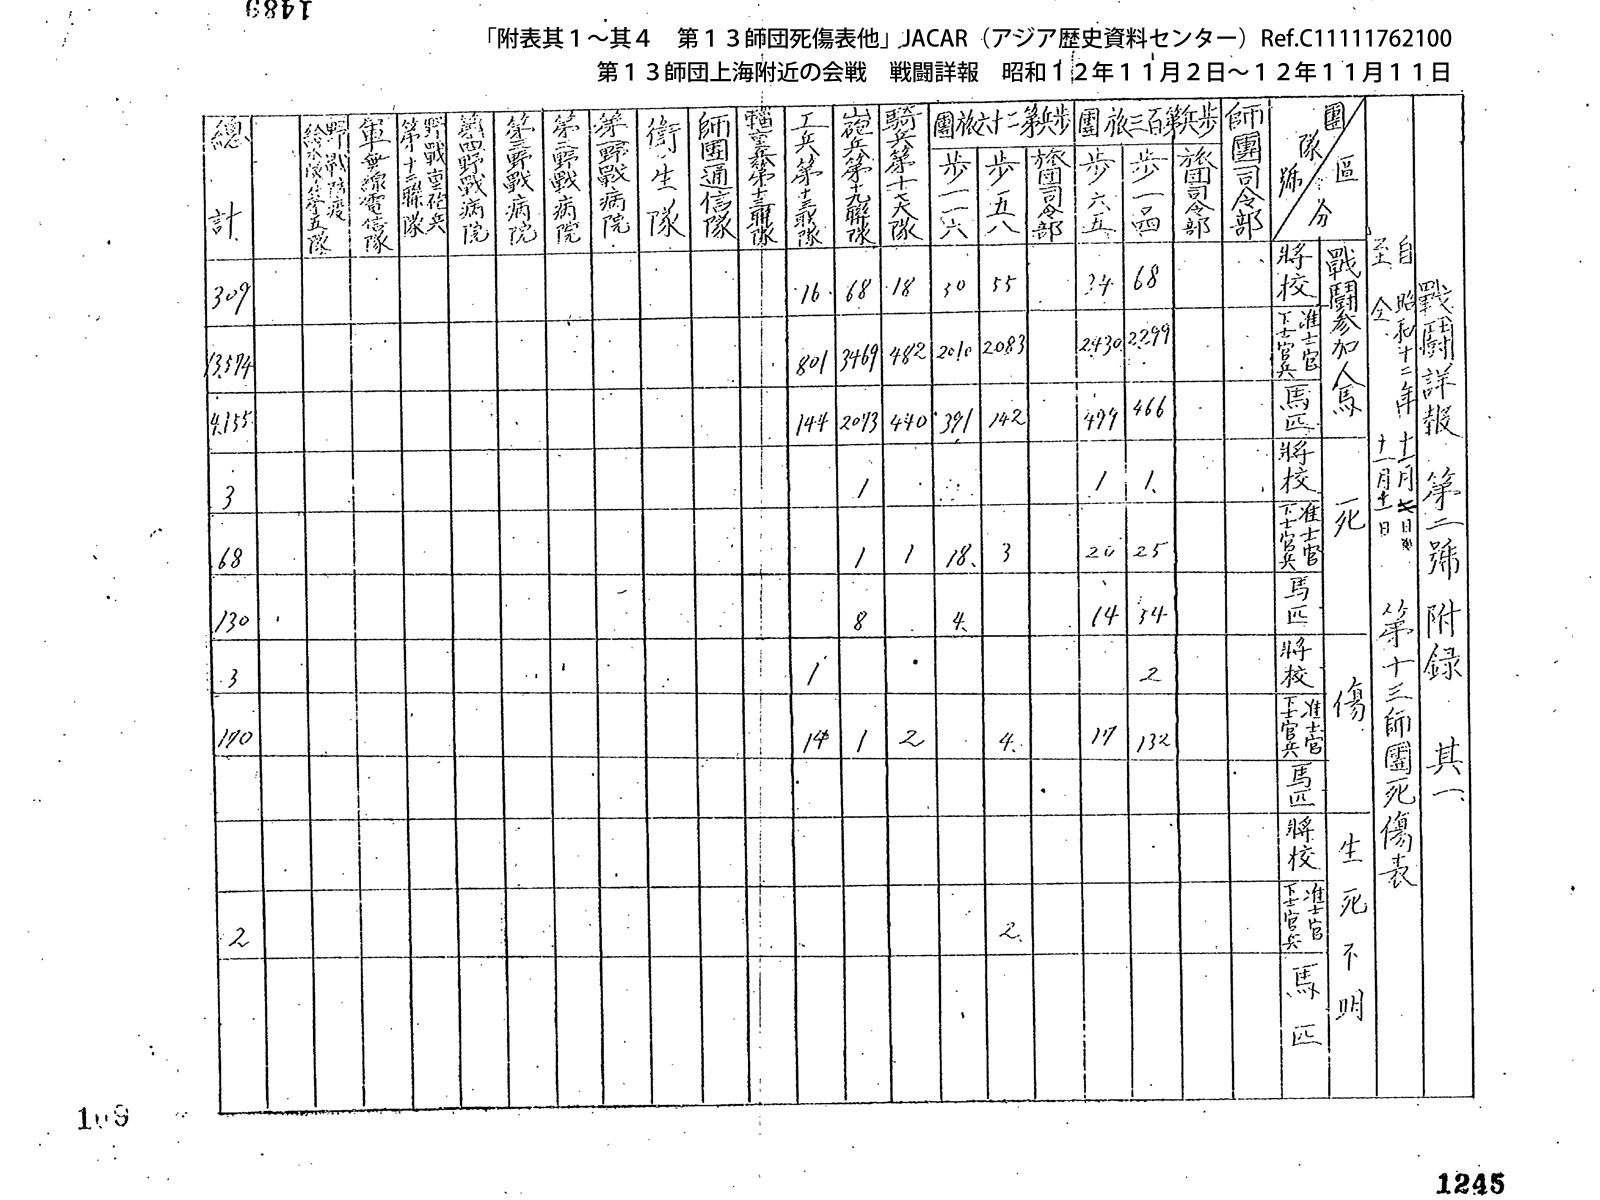 1489
「附表其１～其４　第１３師団死傷表他」JACAR（アジア歴史資料センター）Ref.C11111762100
第１３師団上海附近の会戦　戦闘詳報　昭和１２年１１月２日～１２年１１月１１日
戰鬪詳報 第二號 附録 其一
自 昭和十二年十一月 日
至 仝 十一月十一日
第十三師團死傷表
區分
團隊號
師團司令部
歩兵第百三旅團
旅団司令部
歩一〇四
歩六五
歩兵第二十六旅團
旅団司令部
歩五八
歩一一六
騎兵第十七大隊
山砲兵第十九聯隊
工兵第十三聯隊
輜重兵第十三聯隊
師團通信隊
衛生隊
第一野戰病院
第二野戰病院
第三野戰病院
第四野戰病院
野戰重砲兵第十三聯隊
軍無線電信隊
野戰防疫給水隊第五隊
總計
戰鬪参加人馬
將校 68 34 55 30 18 68 16 309
准士官下士官兵 2299 2430 2083 2010 482 3469 801 13,574
馬匹 466 499 142 391 440 2073 144 4,155
死
將校 1 1 1 3
准士官下士官兵 25 20 3 18 1 1 68
馬匹 34 14 4 8 130
傷
將校 2 1 3
准士官下士官兵 132 17 4 2 1 14 170
馬匹
生死不明
將校
准士官下士官兵 2 2
馬匹
109
1245